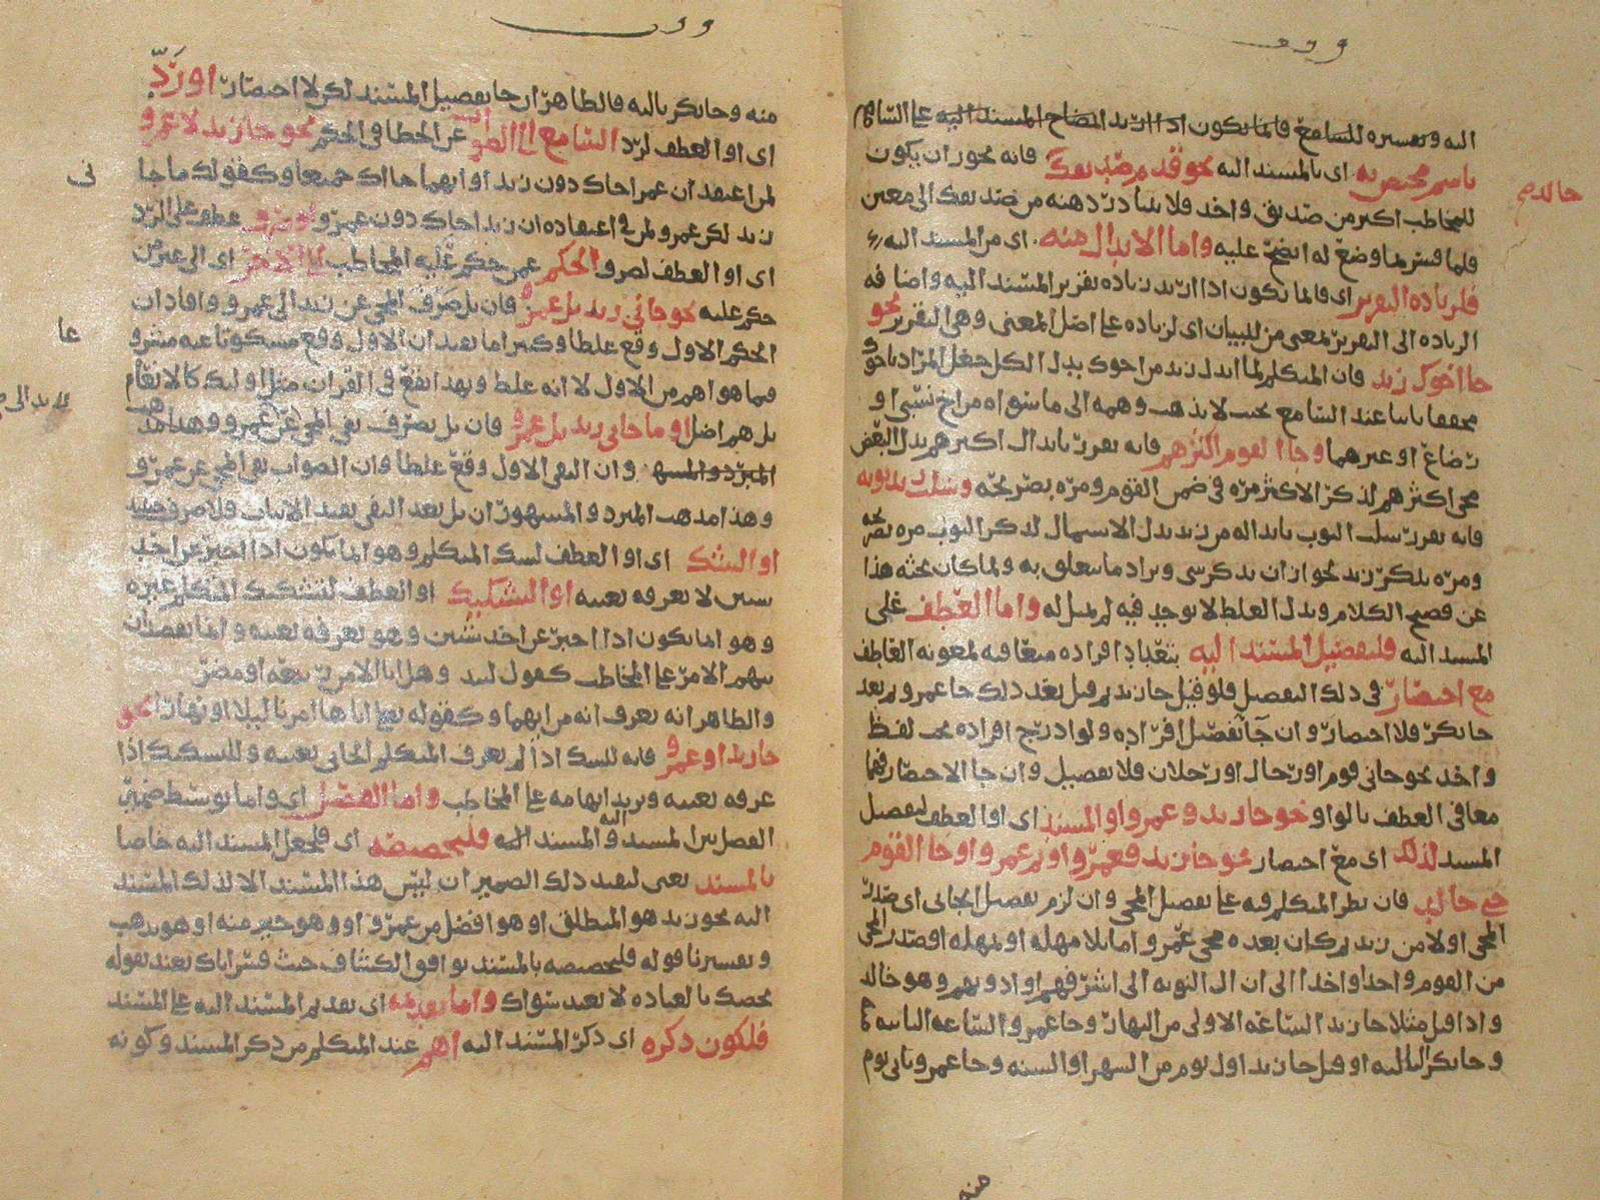 اليه وتفسيره للسامع فانما يكون اذا اريد ايضاح المسند اليه على السامع
باسم مختص به اى بالمسند اليه نحو قدم صديقك فانه يجوز ان يكون
خالد صح
للمخاطب اكثر من صديق واحد فلا يتبادر ذهنه من صديقك الى معين
فلما فسر بما وضع له اتضح عليه واما الابدال منه اى من المسند اليه
فلزيادة التقرير اى فانما يكون اذا اريد زيادة تقرير المسند اليه واضافة
الزيادة الى التقرير بمعنى من للبيان اى لزيادة على اصل المعنى وهى التقرير نحو
جا اخوك زيد فان المتكلم لما ابدل زيد من اخوك بدل الكل جعل المراد باخوك
محققا ثابتا عند السامع بحيث لا يذهب وهمه الى ما سواه من اخ نسبى او
رضاع او غيرهما وجا القوم اكثرهم فانه يقرر بابدال اكثرهم بدل البعض
مجى اكثرهم لذكر الاكثر مرة فى ضمن القوم ومرة بصريحه وسلب زيد ثوبه
فانه يقرر سلب الثوب بابداله من زيد بدل الاشتمال لذكر الثوب مرة
ومرة بذكر زيد لجواز ان يذكر شى ويراد ما يتعلق به ولما كان بحثه هذا
عن فصيح الكلام وبدل الغلط لا يوجد فيه لم يمثل له واما العطف على
المسند اليه فلتفصيل المسند اليه بتعداد افراده متعاقبة لمعونة العاطف
مع اختصار فى ذلك التفصيل فلو قيل جا زيد ثم قيل بعد ذلك جا عمرو ثم بعد
جا بكر فلا اختصار وان جا تفصيل افراده ولو ادرج افراده تحت لفظ
واحد نحو جانى قوم او رجال او رجلان فلا تفصيل وان جا الاختصار فهما
معا فى العطف بالواو نحو جا زيد وعمرو او المسند اى او العطف لتفصيل
المسند كذلك اى مع اختصار نحو جا زيد فعمرو او ثم عمرو او جا القوم
حتى خالد فان نظر المتكلم فيه على تفصيل المجى وان لزم تفصيل الجائى اى صدر
المجى اولا من زيد ثم كان بعده مجى عمرو اما بلا مهلة او بمهلة او صدر المجى
من القوم واحدا واحدا الى ان آل النوبة الى اشرفهم او ادونهم وهو خالد
واذا قيل مثلا جا زيد الساعة الاولى من النهار وجا عمرو الساعة الثانية
وجا بكر الثالثة او قيل جا زيد اول يوم من الشهر او السنة وجا عمرو ثانى يوم
منه
منه وجا بكر ثالثه فالظاهر ان جا تفصيل المسند لكن لا اختصار او رد
اى او العطف لرد السامع الى الصواب عن الخطا فى الحكم نحو جا زيد لا عمرو
لمن اعتقد ان عمرا جاك دون زيد او انهما جااك جميعا وكقولك ما جا
نى
زيد لكن عمرو لمن فى اعتقاده ان زيدا جاك دون عمرو او صرف عطف على الرد
اى او العطف لصرف الحكم عمن حكم عليه المخاطب الى آخر اى الى غير من
حكم عليه نحو جانى زيد بل عمرو فان بل صرف المجى عن زيد الى عمرو وافاد ان
الحكم الاول وقع غلطا وكثيرا ما يفيد ان الاول وقع مسكوتا عنه مشرو
عا
فيما هو اهم من الاول لا انه غلط وبهذا يقع فى القران مثل اولئك كالانعام
بل هم اضل او ما جانى زيد بل عمرو فان بل يصرف نفى المجى عن عمرو وهذا مذهب
المبرد والمشهور وان النفى الاول وقع غلطا وان الصواب نفى المجى عن عمرو
وهذا مذهب المبرد والمشهور ان بل بعد النفى يفيد الاثبات فلا صرف حينئذ
او الشك اى او العطف لشك المتكلم وهو انما يكون اذا اخبر عن احد
شيئين لا يعرفه بعينه او التشكيك او العطف لتشكيك المتكلم غيره
وهو انما يكون اذا اخبر عن احد شيئين وهو يعرفه بعينه وانما يقصد ان
يبهم الامر على المخاطب كقول لبيد وهل انا الا من ربيعة او مضر
والظاهر انه يعرف انه من ايهما وكقوله تعالى اتاها امرنا ليلا او نهارا نحو
جا زيد او عمرو فانه للشك اذا لم يعرف المتكلم الجائى بعينه وللتشكيك اذا
عرفه بعينه ويريد ابهامه على المخاطب واما الفصل اى واما توسط ضمير
الفصل بين المسند والمسند اليه فلتخصيصه اى فلجعل المسند اليه خاصا
بالمسند يعنى ليفيد ذلك الضمير ان ليس هذا المسند الا لذلك المسند
اليه نحو زيد هو المنطلق او هو افضل من عمرو او هو خير منه او هو يذهب
وتفسيرنا قوله فلتخصيصه بالمسند يوافق الكشاف حيث فسر اياك نعبد بقوله
نخصك بالعبادة لا نعبد سواك واما تقديمه اى تقديم المسند اليه على المسند
فلكون ذكره اى ذكر المسند اليه اهم عند المتكلم من ذكر المسند وكونه